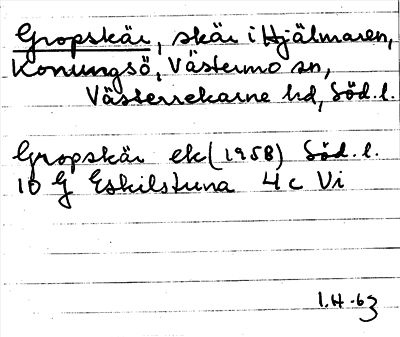 Gropskär, skär i Hjälmaren,
Konungsö, Västermo sn,
Västerrekarne hd, Söd. l.
Gropskär ek (1958) Söd. l.
10 G Eskilstuna 4 c Vi
I.H-63